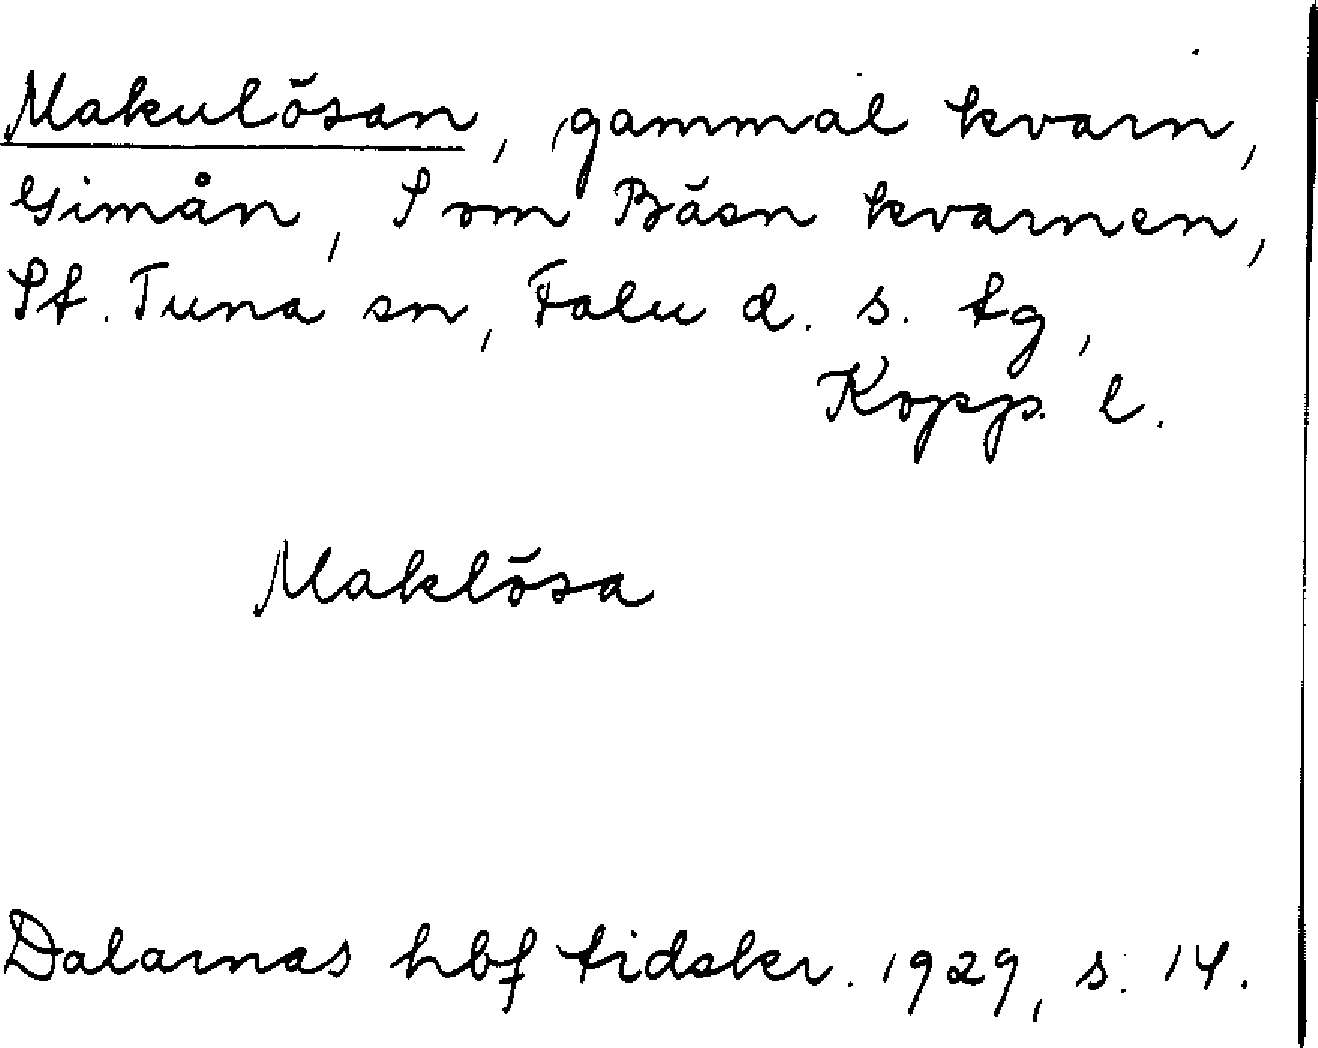 Makulösan, gammal kvarn,
Gimån, S om Bäsn kvarnen,
St. Tuna sn, Falu d. s. tg,
Kopp. l.
Maklösa
Dalarnas hbf tidskr. 1929, s. 14.